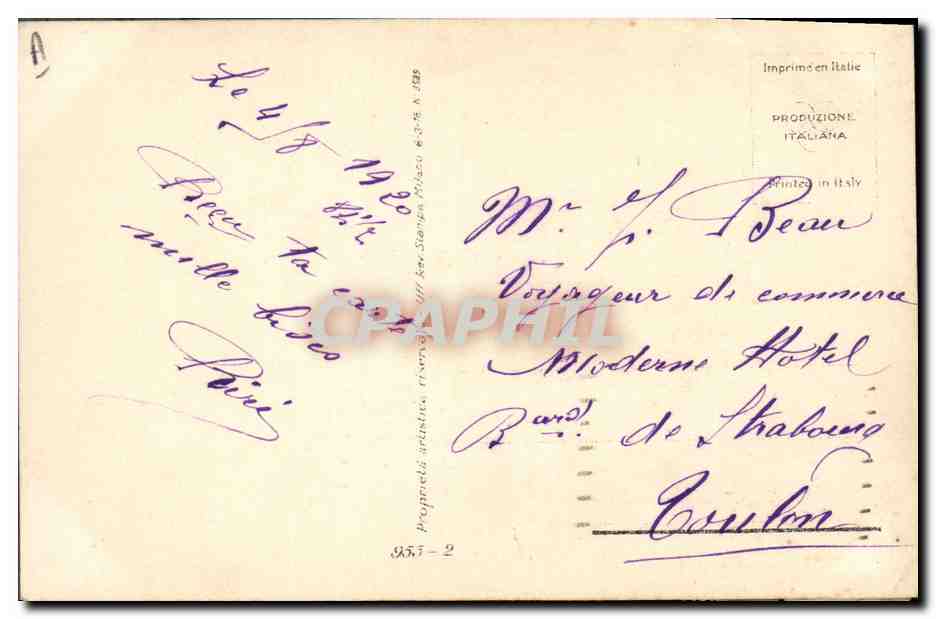 A
Le 4/8 1920
8h½
Reçu ta carte
mille bises
Riri
Proprietà artistica riservata Uff Rev Stampa Milano 6-3-18 N.
955-2
Imprimé en Italie
PRODUZIONE
ITALIANA
Printed in Italy
Mr J. Beau
Voyageur de commerce
Moderne Hotel
Bard de Strabourg
Toulon
CPAPHIL